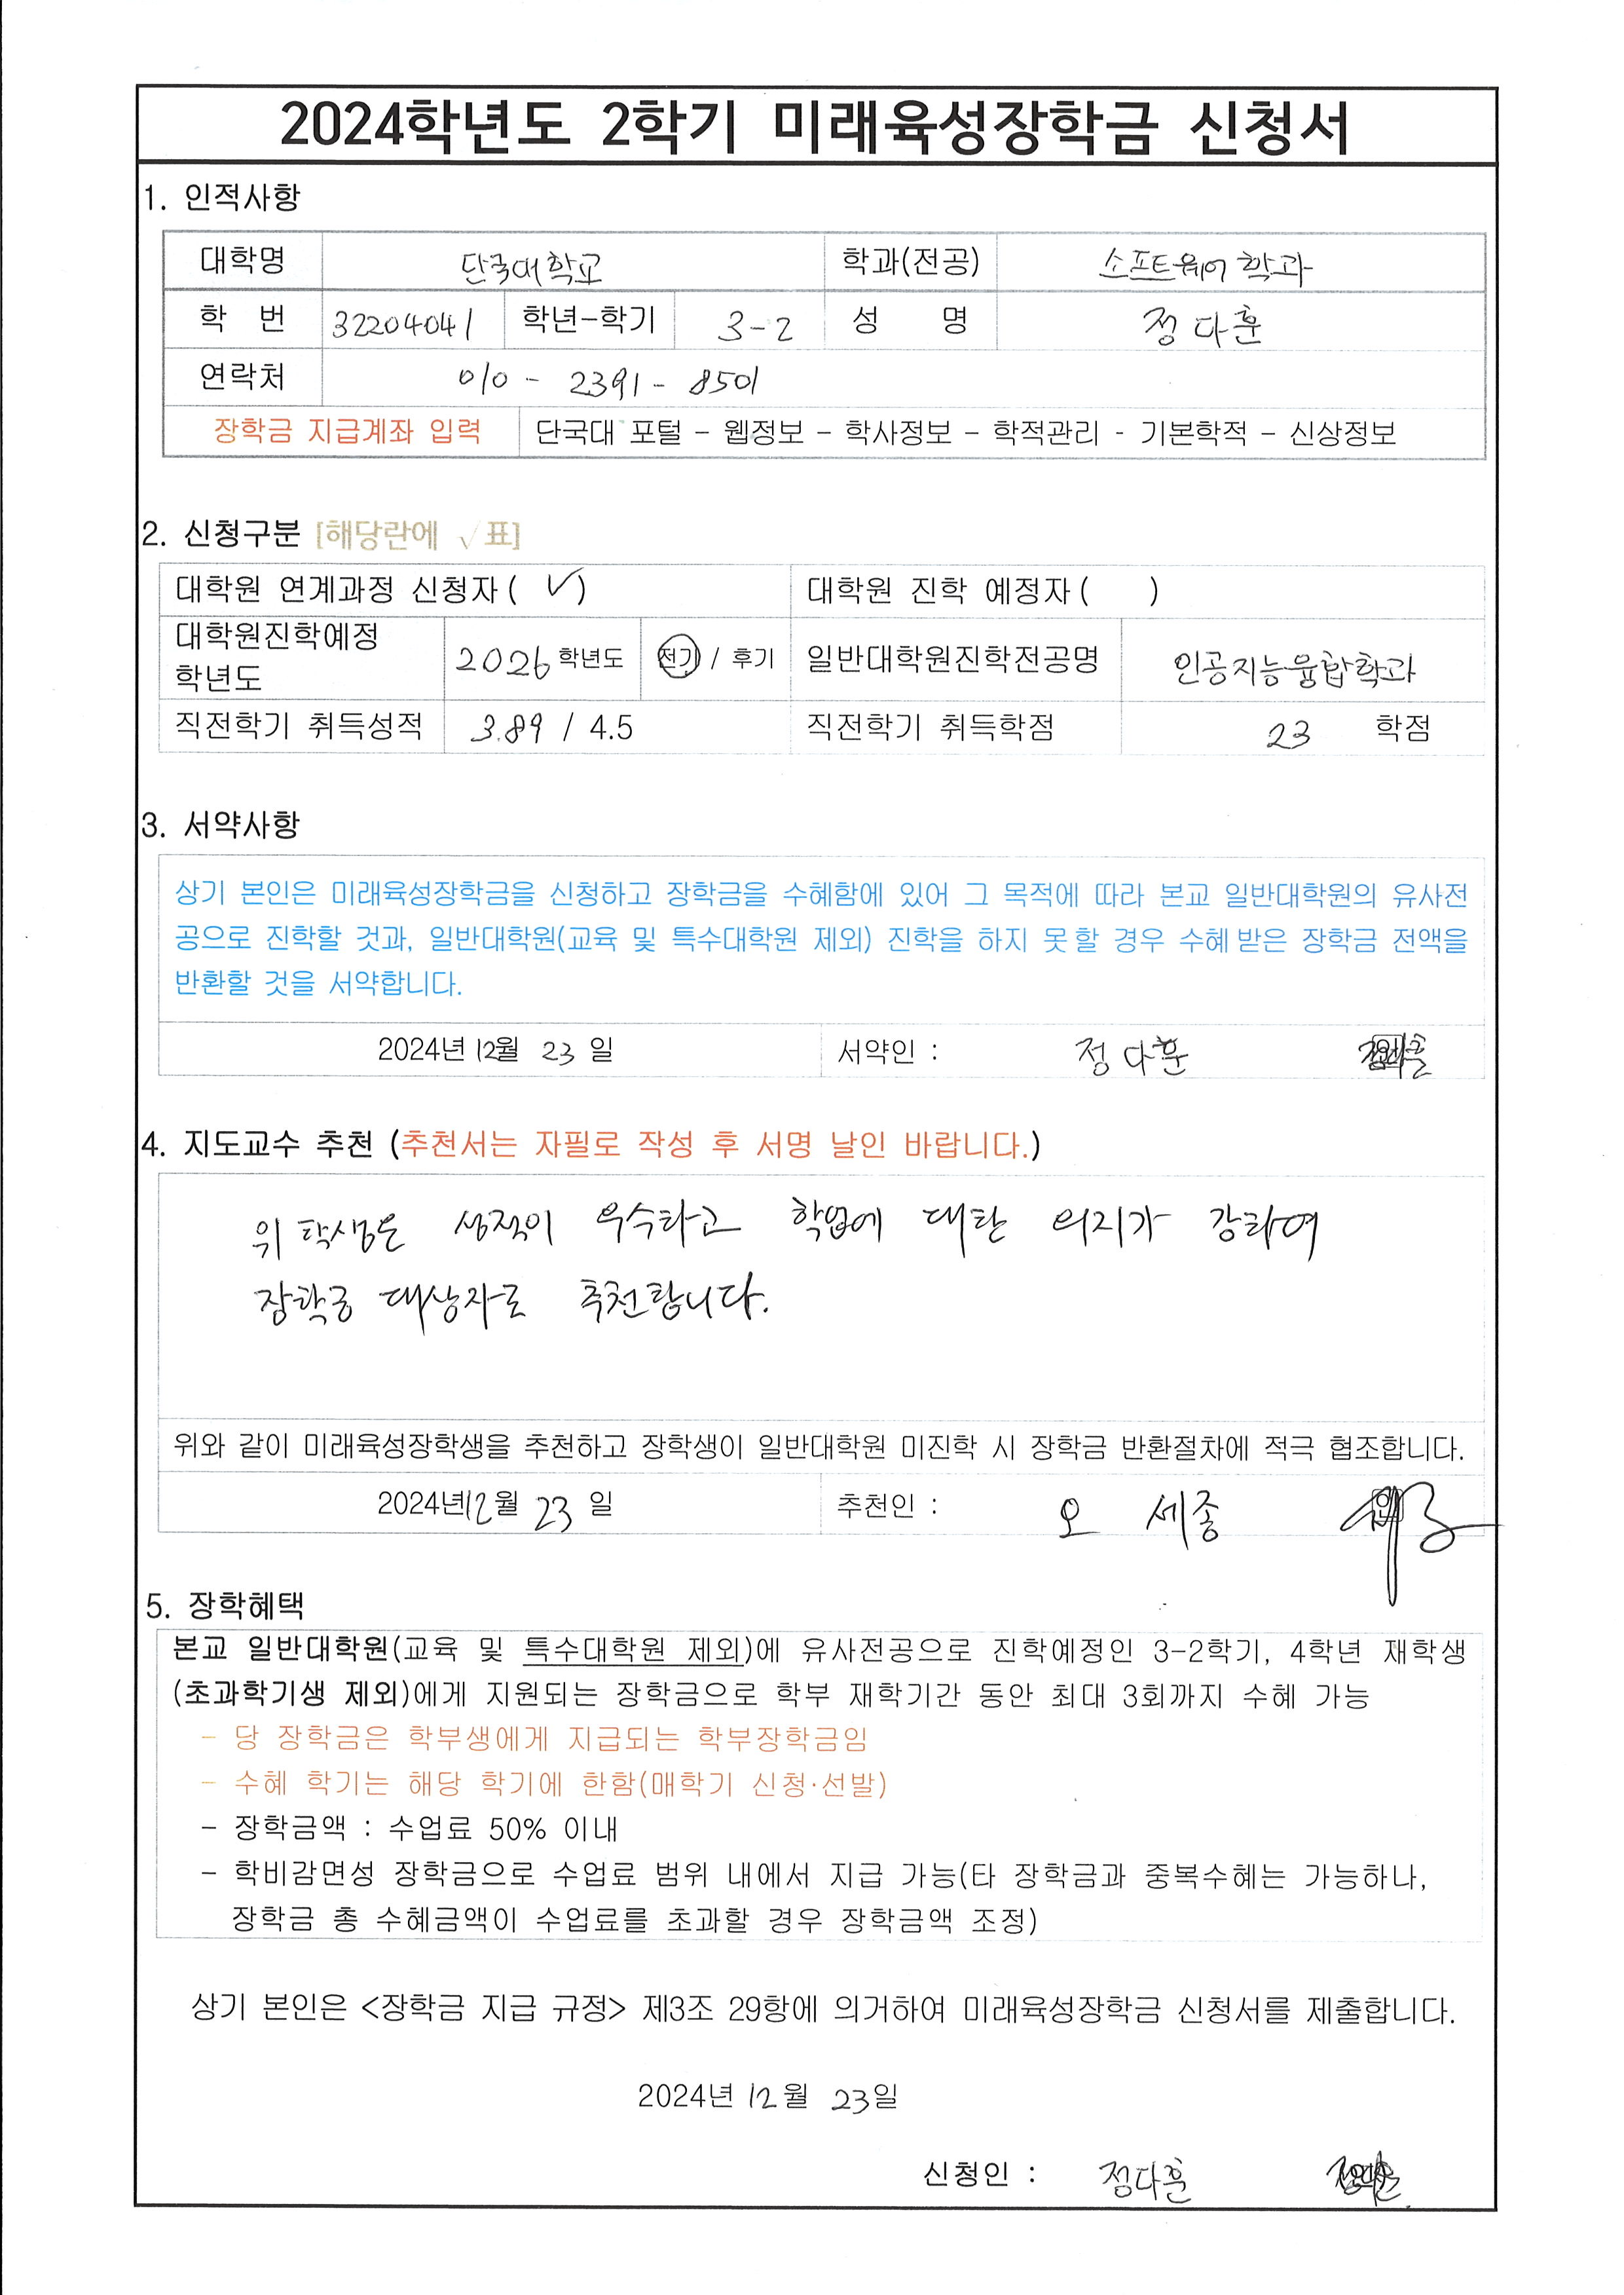 2024학년도 2학기 미래육성장학금 신청서
1. 인적사항
대학명 단국대학교 학과(전공) 소프트웨어학과
학 번 32204041 학년-학기 3-2 성 명 정다훈
연락처 010 - 2391 - 8501
장학금 지급계좌 입력 단국대 포털 – 웹정보 – 학사정보 – 학적관리 - 기본학적 – 신상정보
2. 신청구분 [해당란에 √ 표]
대학원 연계과정 신청자 ( √ ) 대학원 진학 예정자 ( )
대학원진학예정
학년도 2026 학년도 전기 / 후기 일반대학원진학전공명 인공지능융합학과
직전학기 취득성적 3.89 / 4.5 직전학기 취득학점 23 학점
3. 서약사항
상기 본인은 미래육성장학금을 신청하고 장학금을 수혜함에 있어 그 목적에 따라 본교 일반대학원의 유사전
공으로 진학할 것과, 일반대학원(교육 및 특수대학원 제외) 진학을 하지 못할 경우 수혜받은 장학금 전액을
반환할 것을 서약합니다.
2024년 12월 23 일 서약인 : 정다훈
4. 지도교수 추천 (추천서는 자필로 작성 후 서명 날인 바랍니다.)
위 학생은 성적이 우수하고 학업에 대한 의지가 강하여
장학금 대상자로 추천합니다.
위와 같이 미래육성장학생을 추천하고 장학생이 일반대학원 미진학 시 장학금 반환절차에 적극 협조합니다.
2024년 12월 23 일 추천인 : 오 세종 인
5. 장학혜택
본교 일반대학원(교육 및 특수대학원 제외)에 유사전공으로 진학예정인 3-2학기, 4학년 재학생
(초과학기생 제외)에게 지원되는 장학금으로 학부 재학기간 동안 최대 3회까지 수혜 가능
– 당 장학금은 학부생에게 지급되는 학부장학금임
– 수혜 학기는 해당 학기에 한함(매학기 신청·선발)
– 장학금액 : 수업료 50% 이내
– 학비감면성 장학금으로 수업료 범위 내에서 지급 가능(타 장학금과 중복수혜는 가능하나,
장학금 총 수혜금액이 수업료를 초과할 경우 장학금액 조정)
상기 본인은 <장학금 지급 규정> 제3조 29항에 의거하여 미래육성장학금 신청서를 제출합니다.
2024년 12월 23일
신청인 : 정다훈